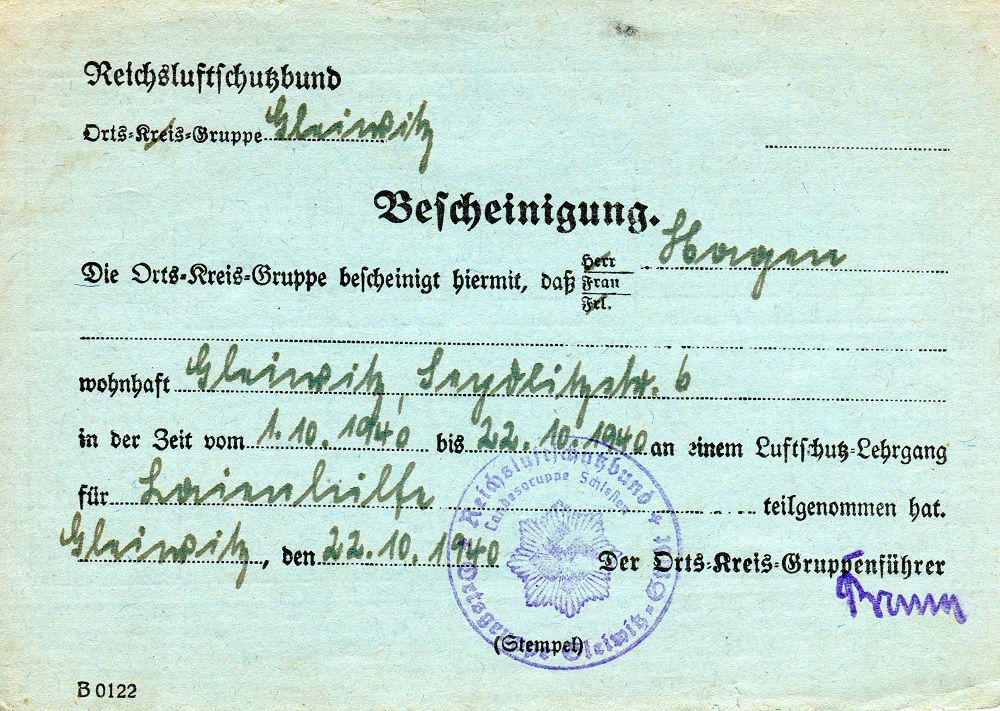 Reichsluftschutzbund
Orts-Kreis-Gruppe Gleiwitz
Bescheinigung.
Die Orts-Kreis-Gruppe bescheinigt hiermit, daß Herr Frau Frl. Hagen
wohnhaft Gleiwitz, Seydlitzstr. 6
in der Zeit vom 1.10.1940 bis 22.10.1940 an einem Luftschutz-Lehrgang
für Laienhilfe teilgenommen hat.
Gleiwitz, den 22.10.1940 Der Orts-Kreis-Gruppenführer
Reichsluftschutzbund
Landesgruppe Schlesien
Ortsgruppe Gleiwitz-Stadt
(Stempel)
B 0122